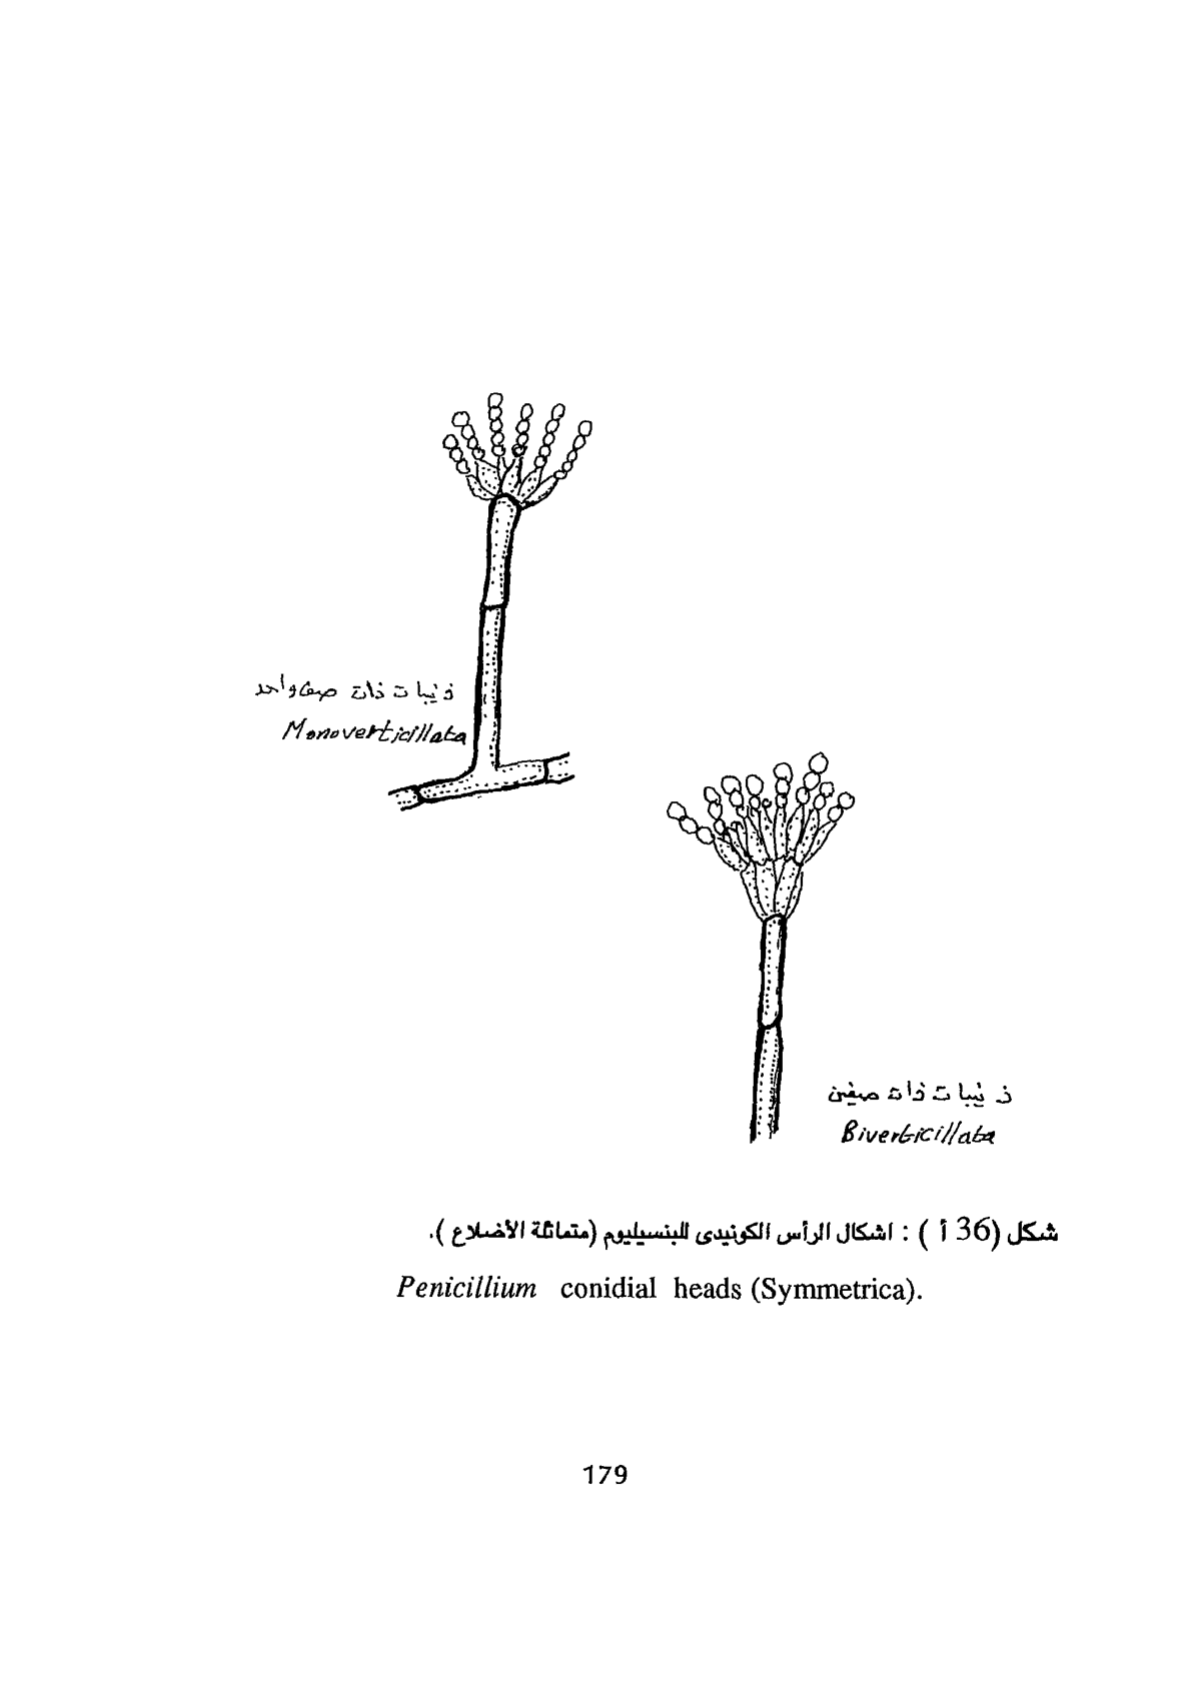 ذنيبات ذات صف واحد
Monoverticillata
ذنيبات ذات صفين
Biverticillata
شكل (36 أ ) : اشكال الرأس الكونيدى للبنسيليوم (متماثلة الأضلاع ).
Penicillium conidial heads (Symmetrica).
179